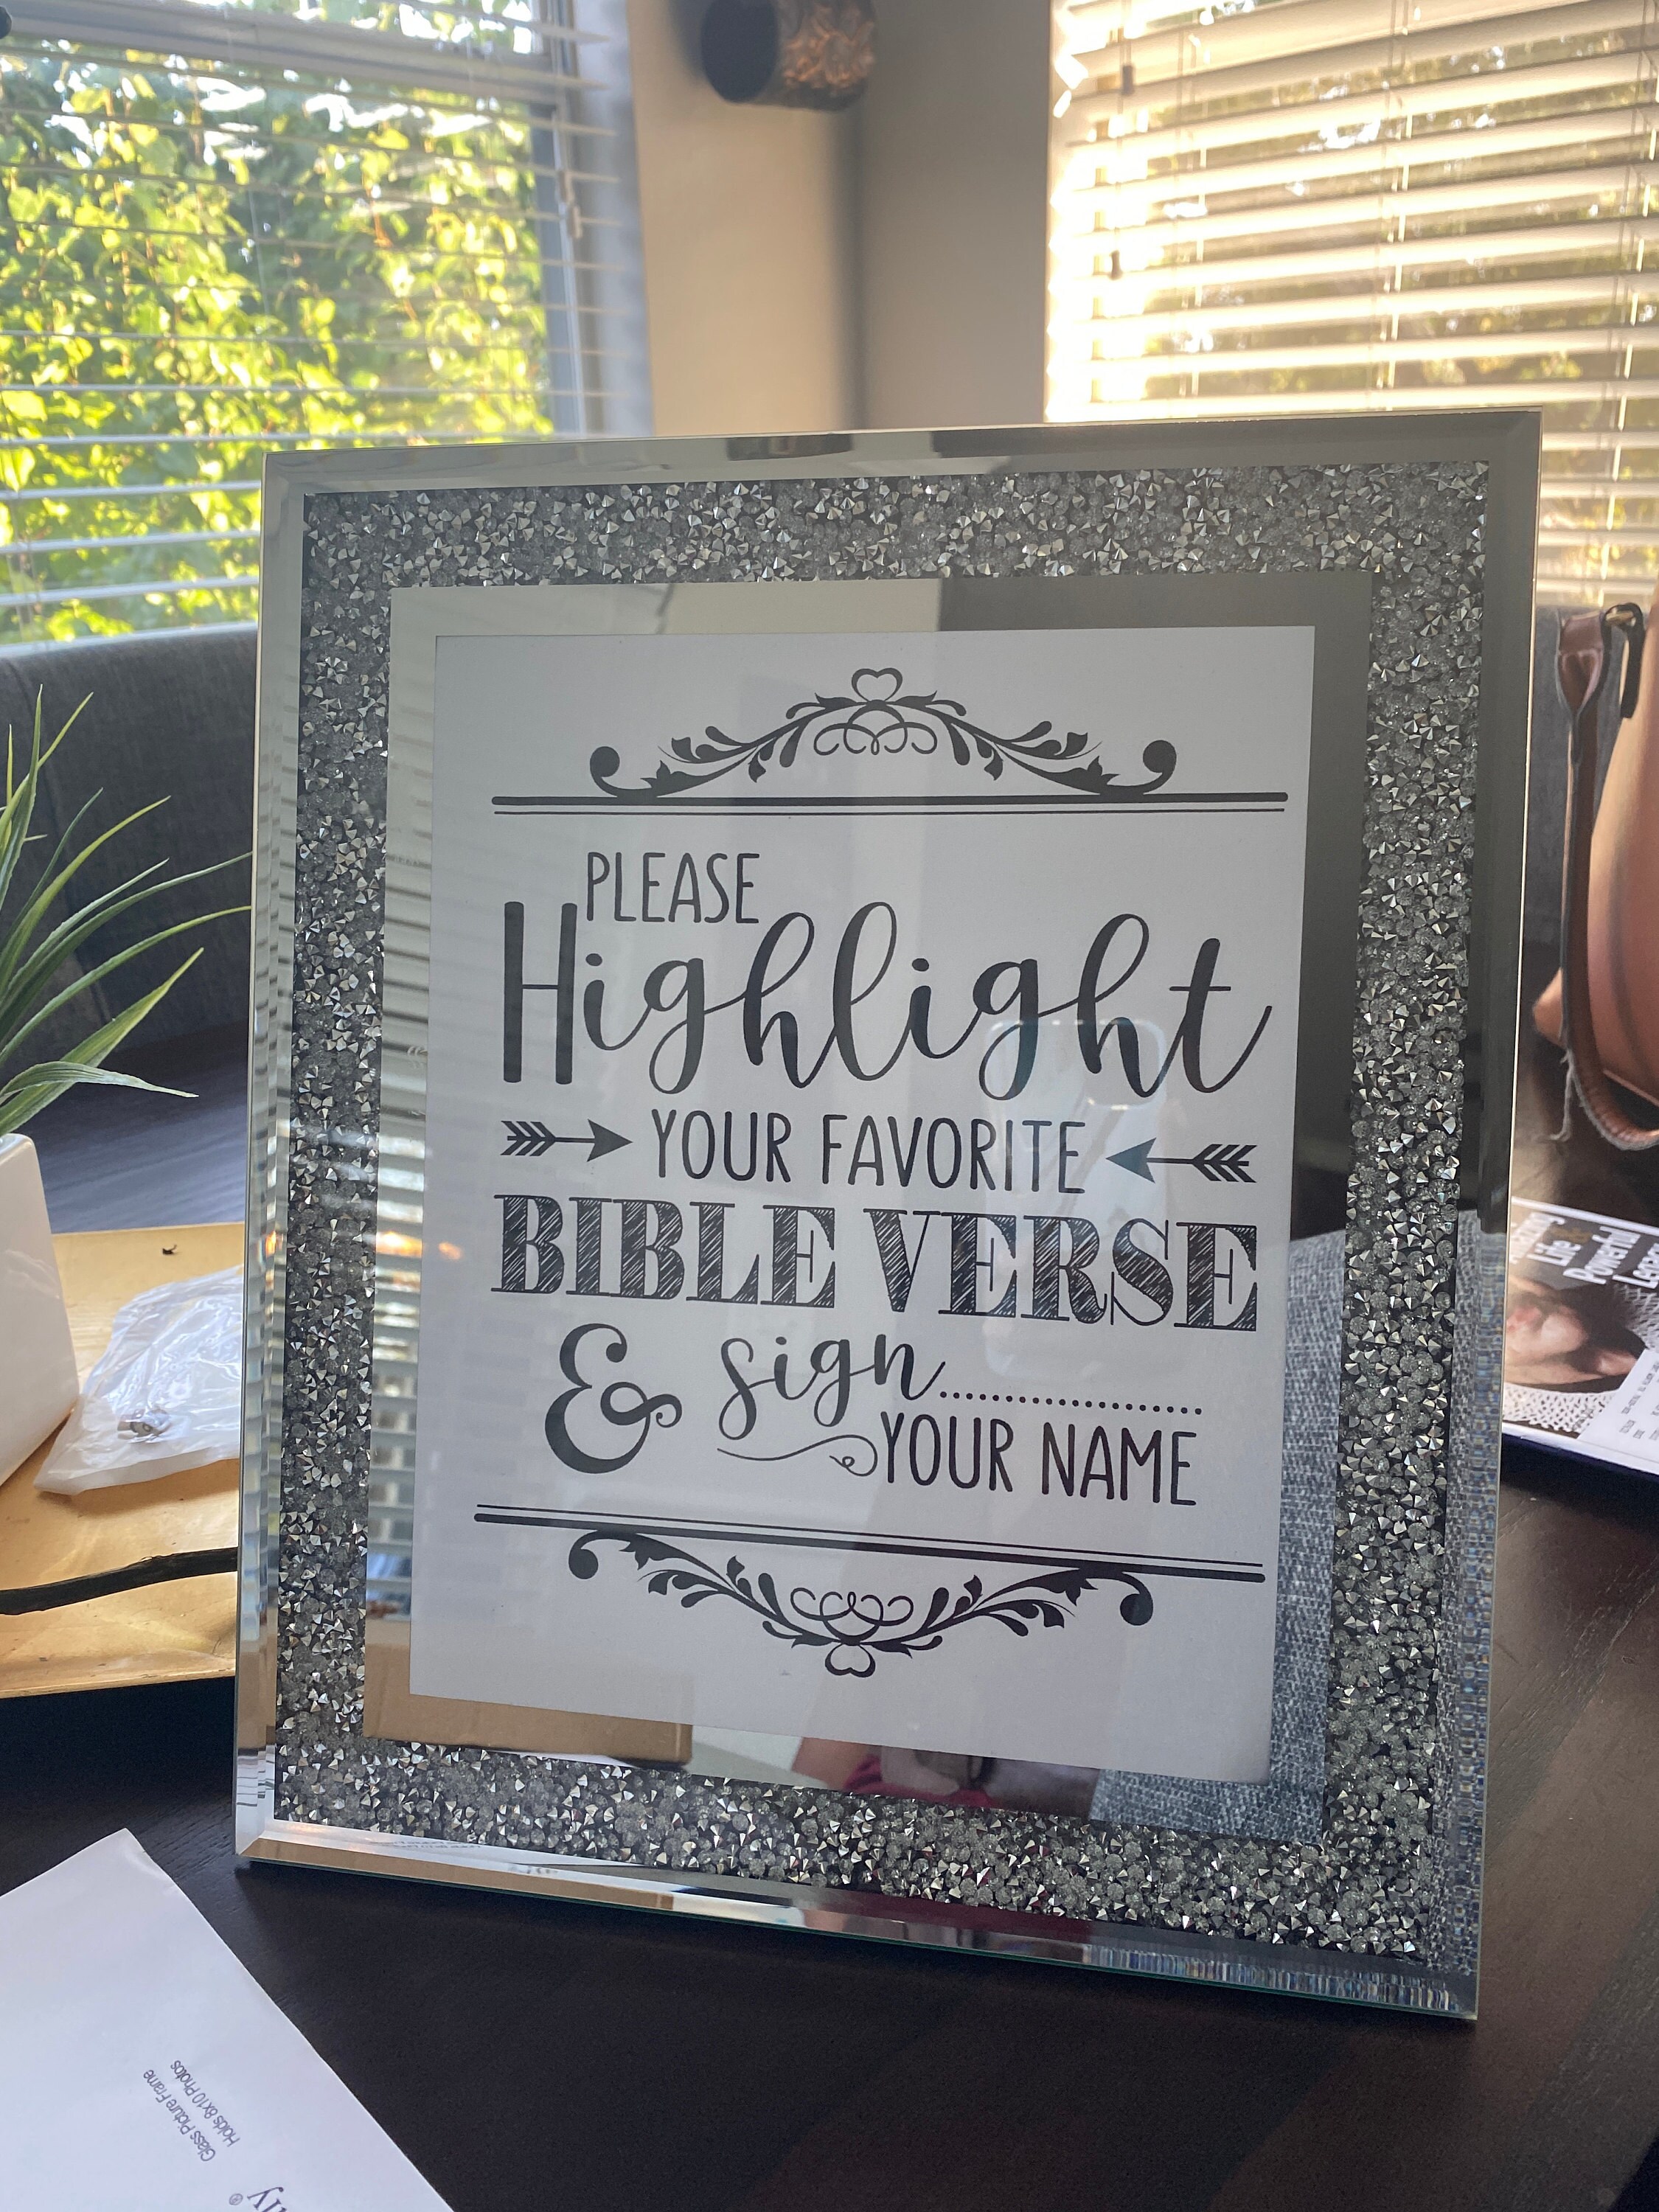 PLEASE
Highlight
YOUR FAVORITE
BIBLE VERSE
& sign
YOUR NAME
Life
Powerful
Glass Picture Frame
Holds 8x10 Photos